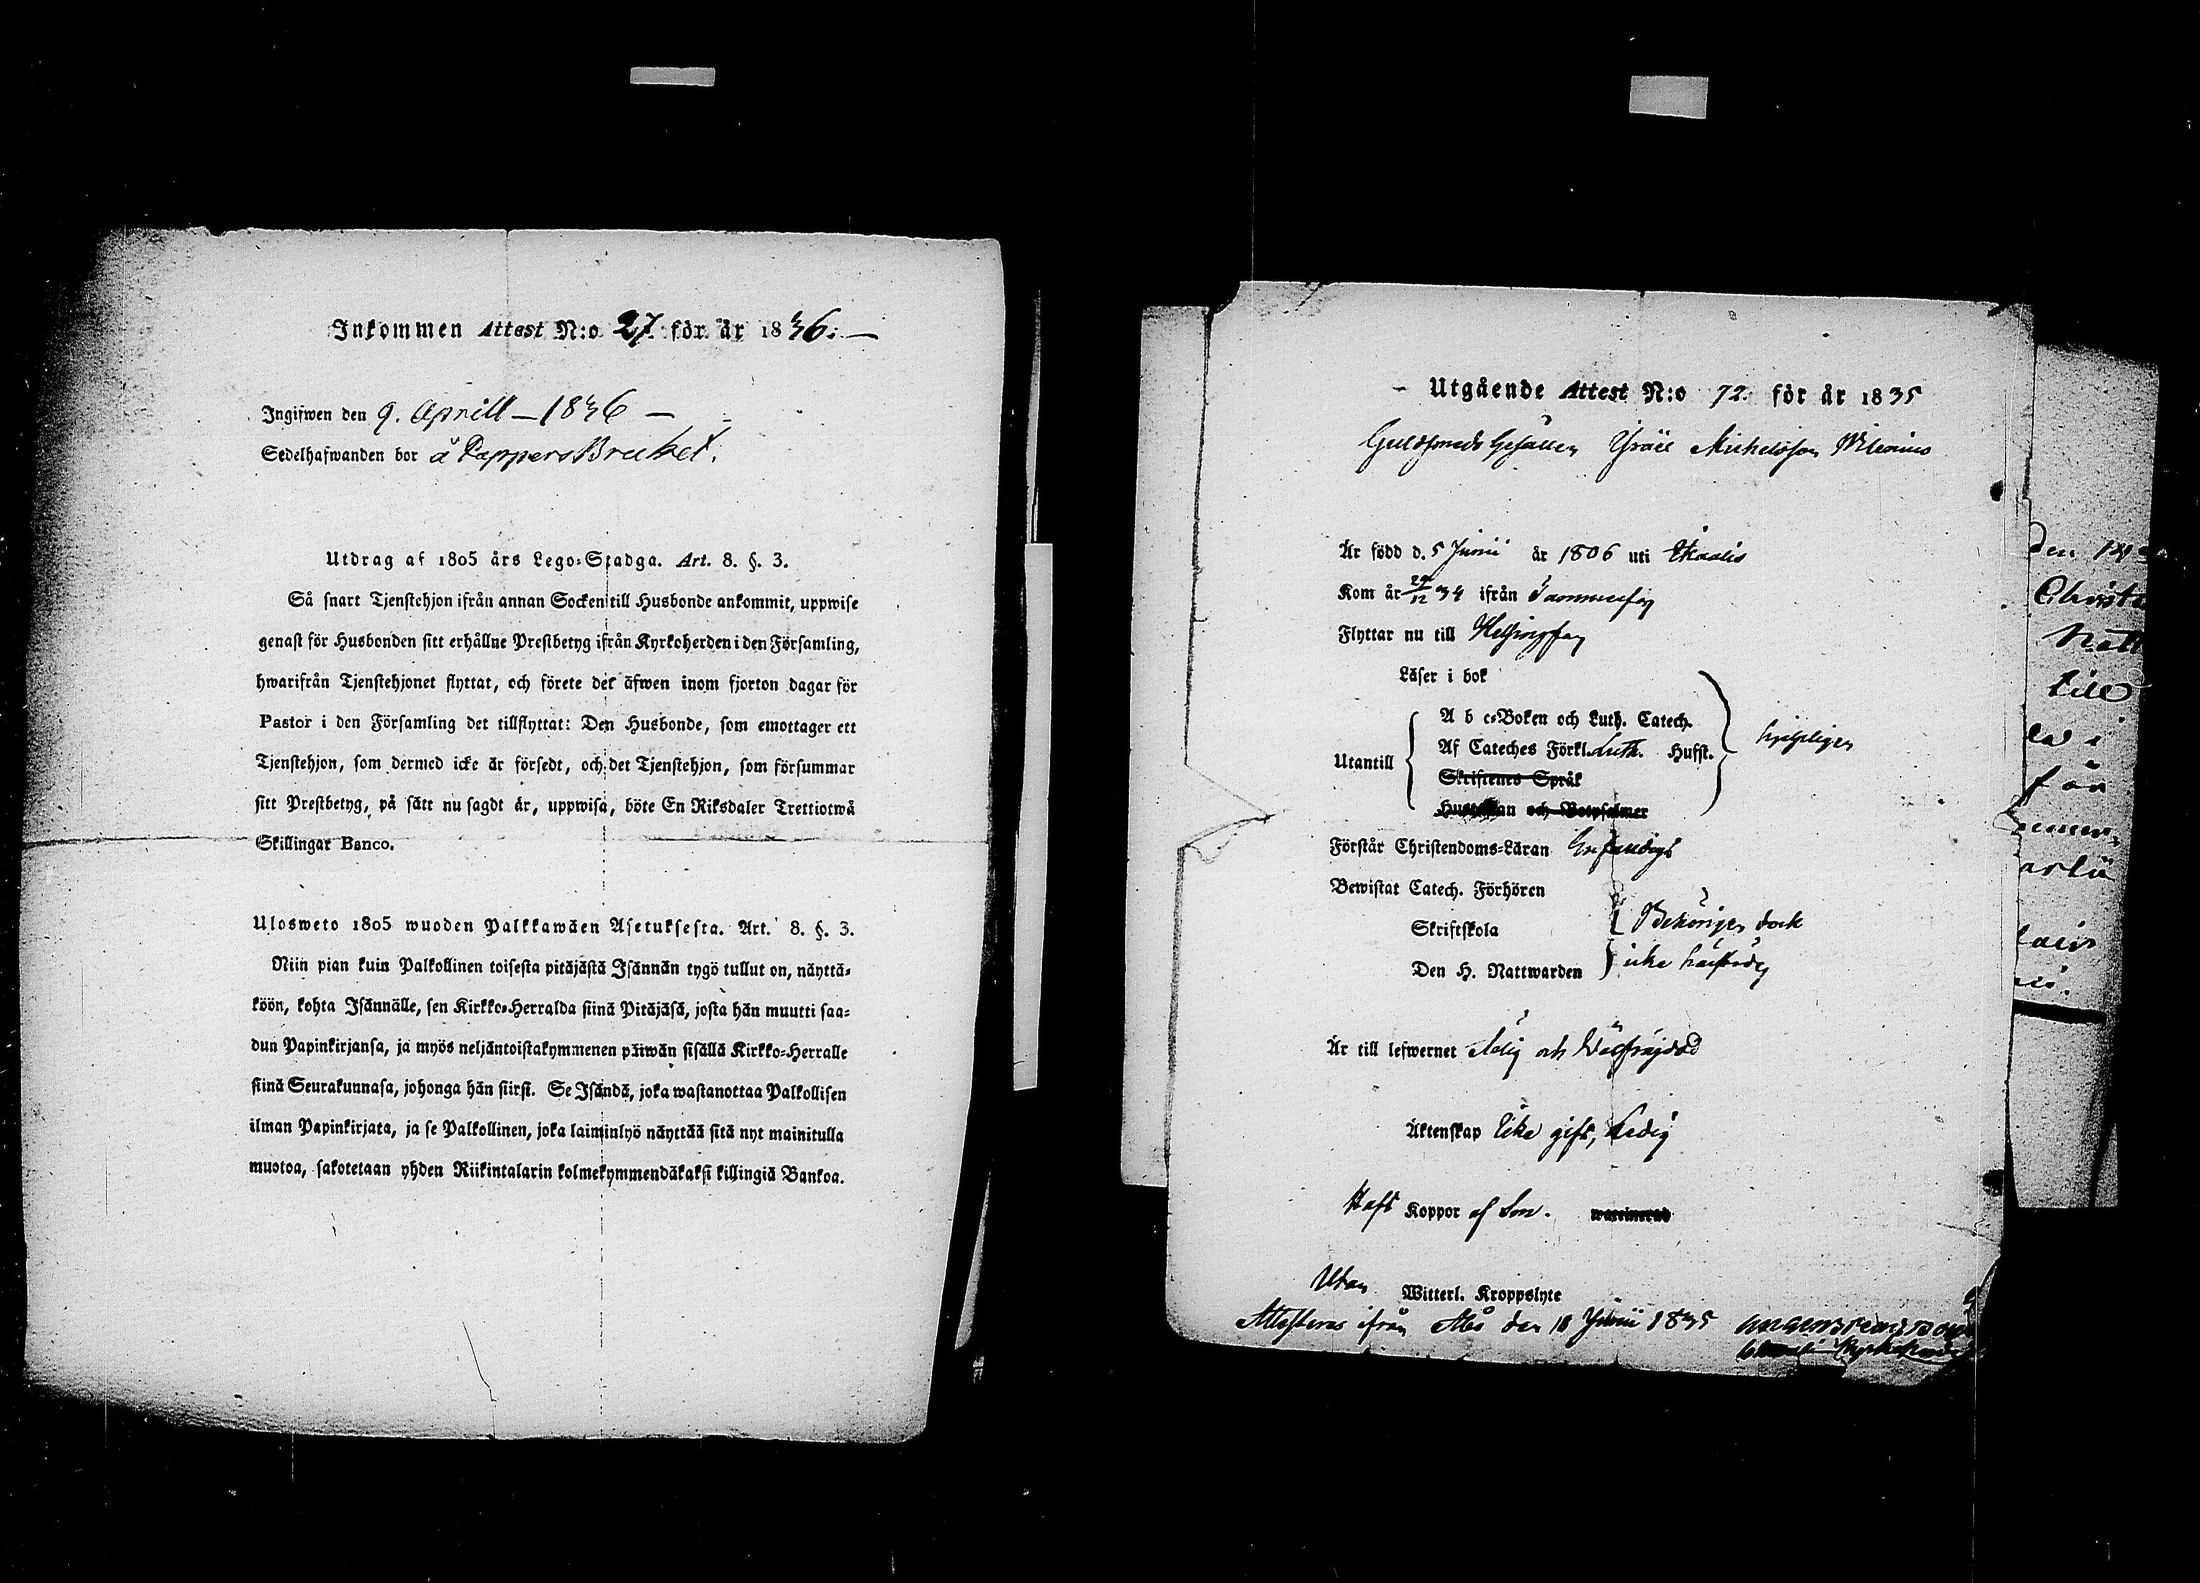 Inkommen Attest N:o 27. för år 1836. —
Ingifwen den 9. Aprill — 1836 —
Sedelhafwanden bor å PappersBruket.
Utdrag af 1805 års Lego-Stadga. Art. 8. §. 3.
Så snart Tjenstehjon ifrån annan Socken till Husbonde ankommit, uppwise
genast för Husbonden sitt erhållne Prestbetyg ifrån Kyrkoherden i den Församling,
hwarifrån Tjenstehjonet flyttat, och förete det äfwen inom fjorton dagar för
Pastor i den Församling det tillflyttat: Den Husbonde, som emottager ett
Tjenstehjon, som dermed icke är försedt, och det Tjenstehjon, som försummar
sitt Prestbetyg, på sätt nu sagdt är, uppwisa, böte En Riksdaler Trettiotwå
Skillingar Banco.
Ulosweto 1805 wuoden Palkkawäen Asetuksesta. Art. 8. §. 3.
Niin pian kuin Palkollinen toisesta pitäjästä Isännän tygö tullut on, näyttä-
köön, kohta Isännälle, sen Kirkko-Herralda siinä Pitäjäsä, josta hän muutti saa-
dun Papinkirjansa, ja myös neljäntoistakymmenen päiwän sisällä Kirkko-Herralle
siinä Seurakunnasa, johonga hän siirsi. Se Isändä, joka wastanottaa Palkollisen
ilman Papinkirjata, ja se Palkollinen, joka laiminlyö näyttää sitä nyt mainitulla
muotoa, sakotetaan yhden Riikintalarin kolmekymmendäkaksi killingiä Bankoa.
Utgående Attest N:o 72. för år 1835
Guldsmeds Gesällen Israël Michelsson
Är född d. 5 Junii år 1806 uti Ikalis
Kom år 12 34 ifrån Tammerfors
Flyttar nu till Helsingfors
Läser i bok
Utantill
A b c-Boken och Luth. Catech.
Af Cateches Förkl. Luth. Hufst.
Skriftenes Språk
Hustaflan och Botpsalmer
hjelpligen
Förstår Christendoms-Läran Enfaldigt
Bewistat Catech. Förhören
Skriftskola
Den H. Nattwarden
Behörigen dock
icke härstädes
Är till lefwernet ärlig och wälfrägdad
Äktenskap Icke gift, Ledig
Haft Koppor af Son. waccinerad
Utan Witterl. Kroppslyte
Attesteras ifrån Åbo den 10 Junii 1835
den
Christ
till
för